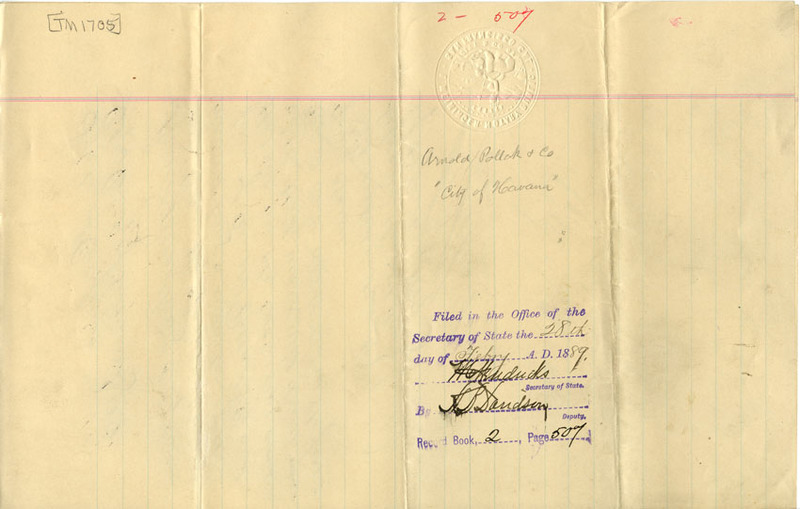 [TM1705]
2 - 507
Arnold Pollak & Co
"City of Havana"
Filed in the Office of the
Secretary of State the 28th
day of Feby A. D. 1889.
W C Hendricks
Secretary of State.
By Davidson
Deputy.
Record Book, 2, Page 507